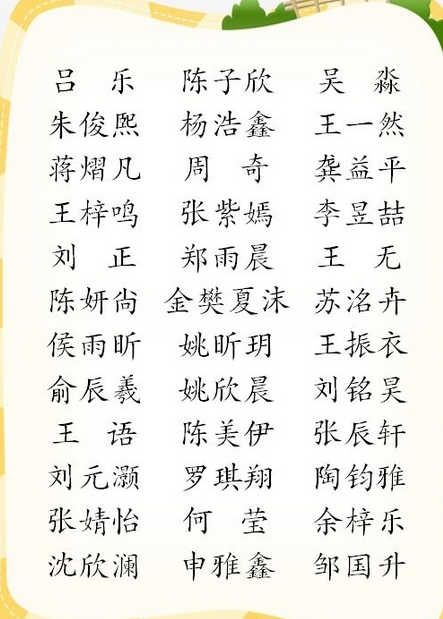 吕 乐 陈子欣 吴 淼
朱俊熙 杨浩鑫 王一然
蒋熠凡 周 奇 龚益平
王梓鸣 张紫嫣 李昱喆
刘 正 郑雨晨 王 无
陈妍尚 金樊夏沫 苏洺卉
侯雨昕 姚昕玥 王振衣
俞辰羲 姚欣晨 刘铭昊
王 语 陈美伊 张辰轩
刘元灏 罗琪翔 陶钧雅
张婧怡 何 莹 余梓乐
沈欣澜 申雅鑫 邹国升